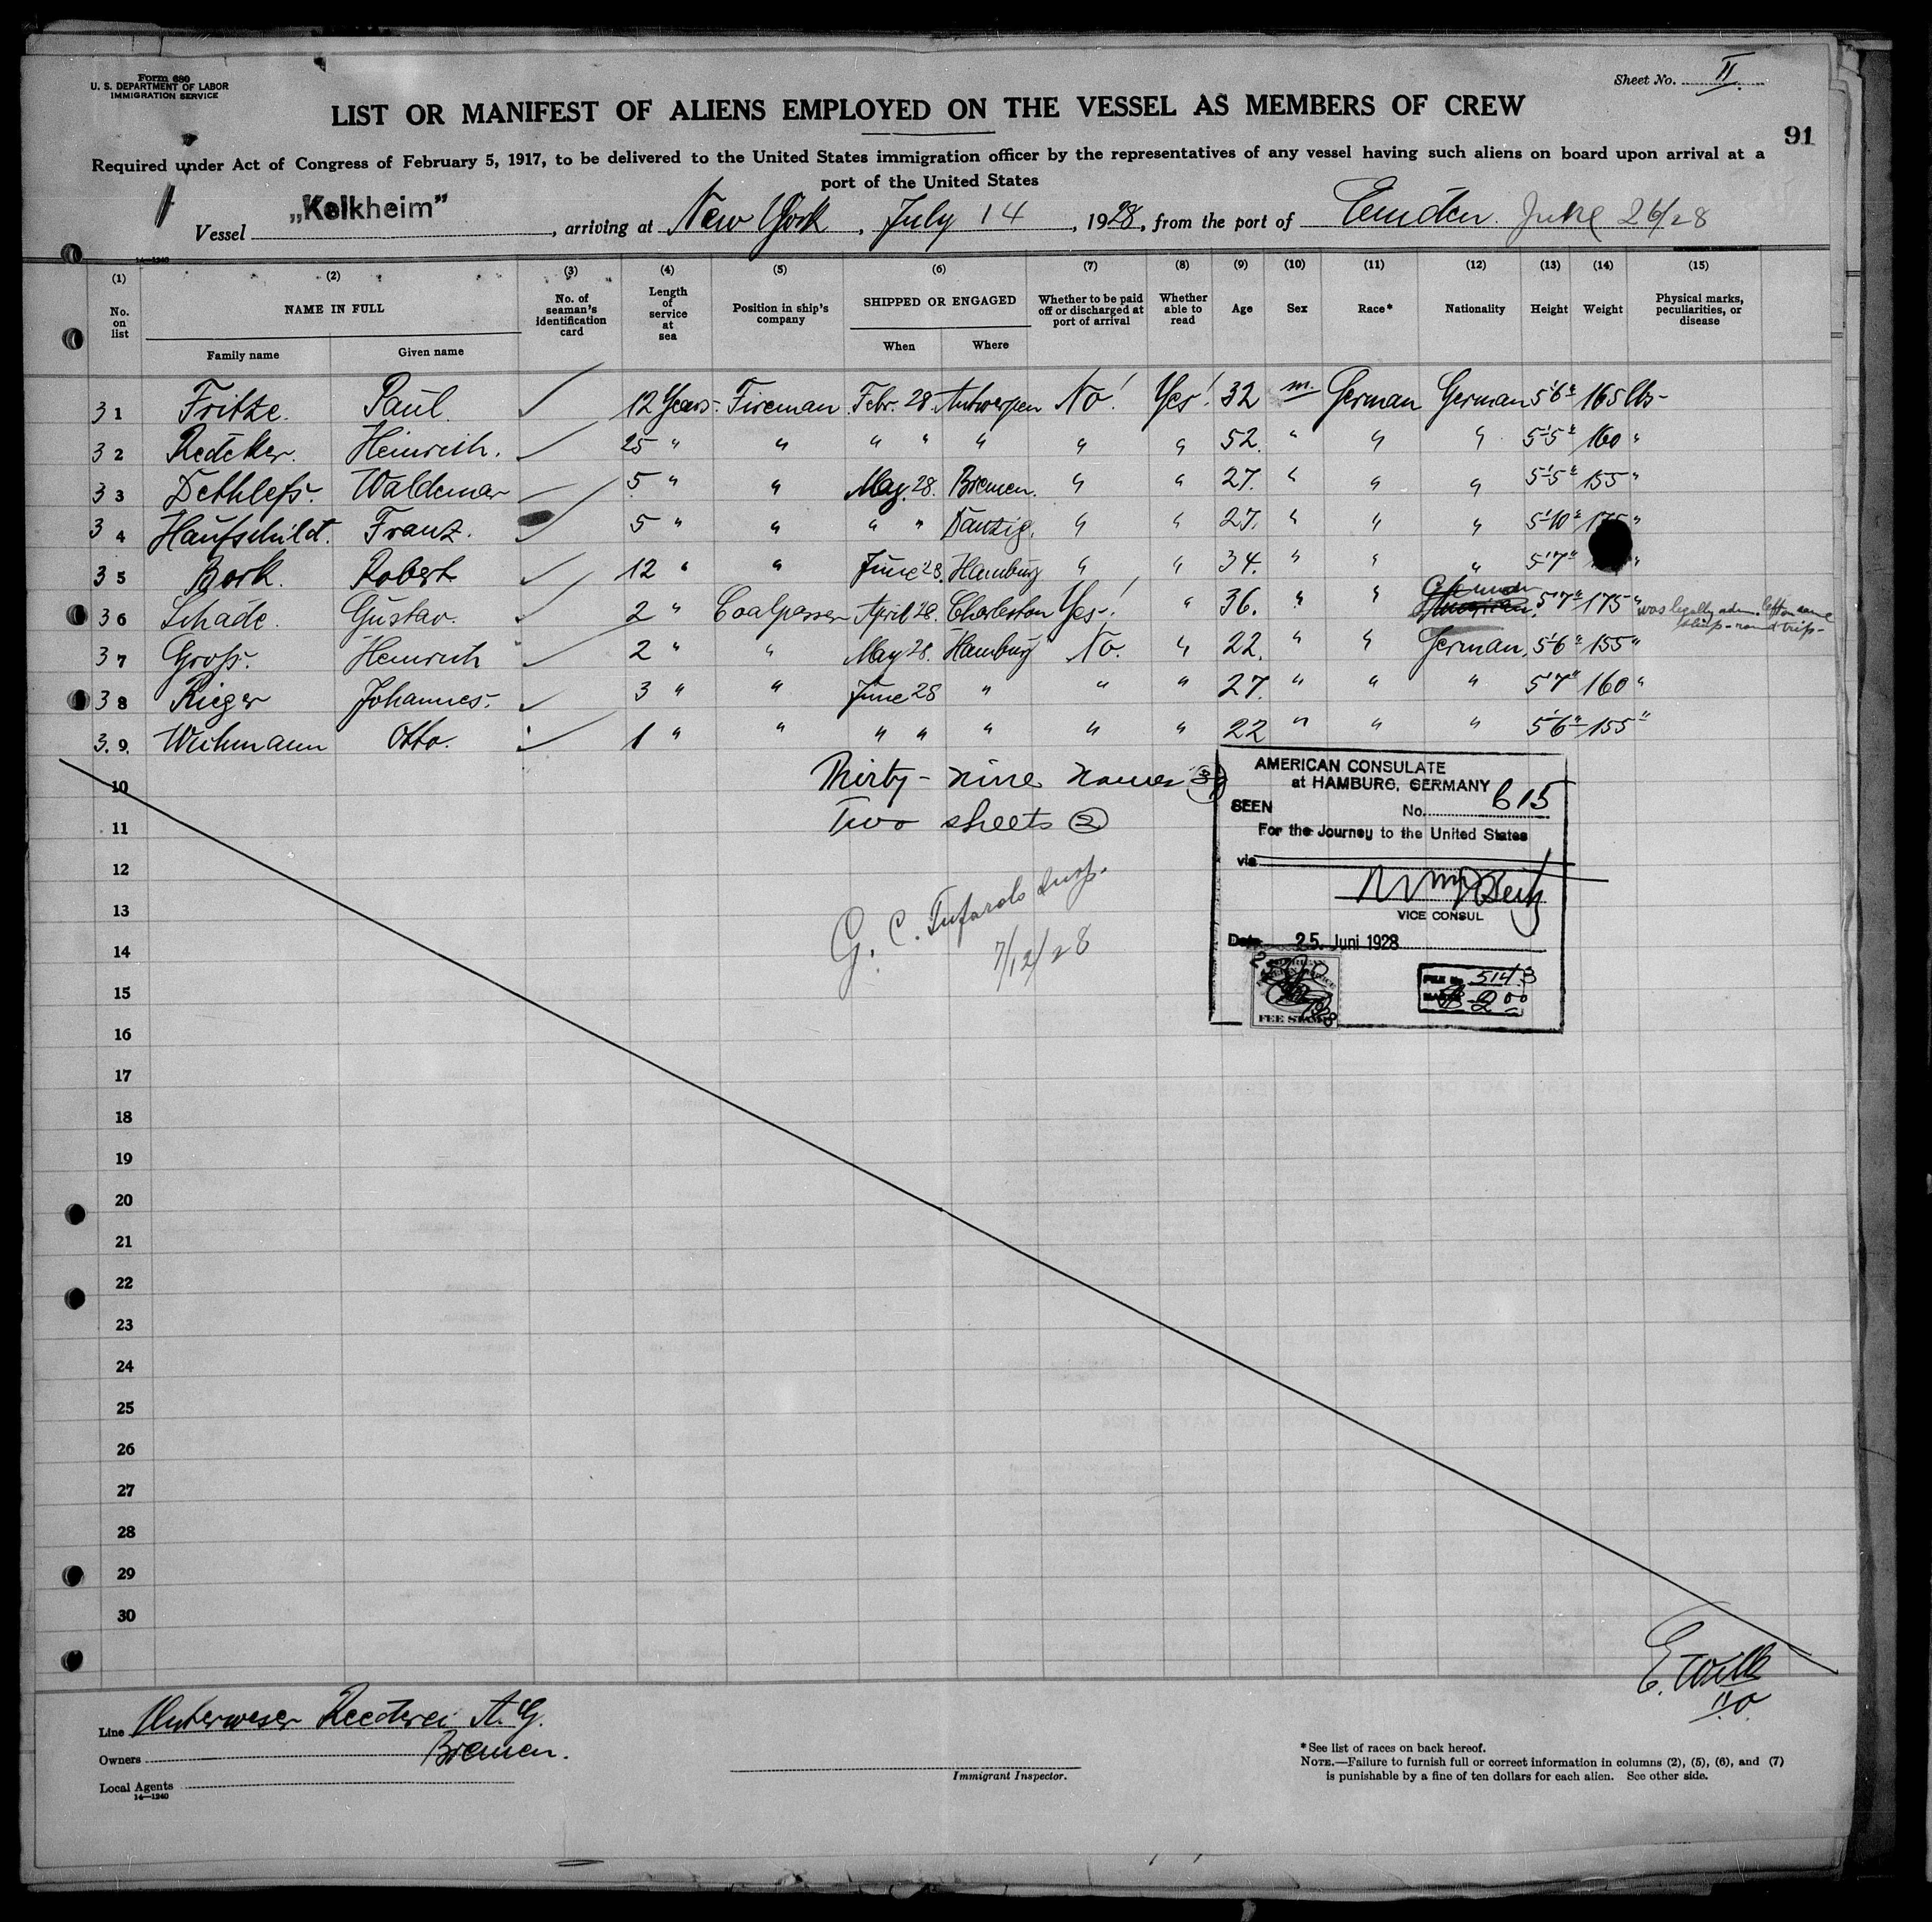 Form 680
U. S. DEPARTMENT OF LABOR
IMMIGRATION SERVICE
Sheet No. II.
LIST OR MANIFEST OF ALIENS EMPLOYED ON THE VESSEL AS MEMBERS OF CREW
91
Required under Act of Congress of February 5, 1917, to be delivered to the United States immigration officer by the representatives of any vessel having such aliens on board upon arrival at a
port of the United States
Vessel „Kelkheim", arriving at New York, July 14, 1928, from the port of Emden. June 26/28
14—1240
(1) (2) (3) (4) (5) (6) (7) (8) (9) (10) (11) (12) (13) (14) (15)
No. on list
NAME IN FULL
Family name
Given name
No. of seaman's identification card
Length of service at sea
Position in ship's company
SHIPPED OR ENGAGED
When
Where
Whether to be paid off or discharged at port of arrival
Whether able to read
Age
Sex
Race*
Nationality
Height
Weight
Physical marks, peculiarities, or disease
31 Fritze. Paul. 12 Years. Fireman Febr. 28. Antwerpen No! Yes! 32 m. German German 5'6" 165 lbs-
32 Redeker. Heinrich. 25 " " " " " " " 52. " " " 5'5" 160 "
33 Dethlefs. Waldemar 5 " " May. 28. Bremen. " " 27. " " " 5'5" 155 "
34 Haufschildt. Franz. 5 " " " " Danzig. " " 27. " " " 5'10" 175 "
35 Bork. Robert 12 " " June 28. Hamburg " " 34. " " " 5'7" "
36 Schade. Gustav. 2 " Coalpasser April 28. Charleston Yes! " 36. " " 5'7" 175 " was legally adm. left on same
ship - round trip -
37 Groß. Heinrich 2 " " May 28. Hamburg No. " 22. " " German, 5'6" 155 "
38 Rieger Johannes. 3 " " June 28 " " " 27. " " " 5'7" 160 "
3.9. Wichmann Otto. 1 " " " " " " " 22 " " " 5'6" 155 "
Thirty - nine names 39
Two sheets 2
G. C. Tufarolo Insp.
7/12/28
AMERICAN CONSULATE
at HAMBURG, GERMANY
SEEN No. 615
For the Journey to the United States
via
VICE CONSUL
Date 25. Juni 1928
FEE STAMP
FILE No. 5143
$ 2.00
10
11
12
13
14
15
16
17
18
19
20
21
22
23
24
25
26
27
28
29
30
Line Unterweser Reederei A. G.
Owners Bremen.
Local Agents
14—1240
Immigrant Inspector.
*See list of races on back hereof.
NOTE.—Failure to furnish full or correct information in columns (2), (5), (6), and (7)
is punishable by a fine of ten dollars for each alien. See other side.